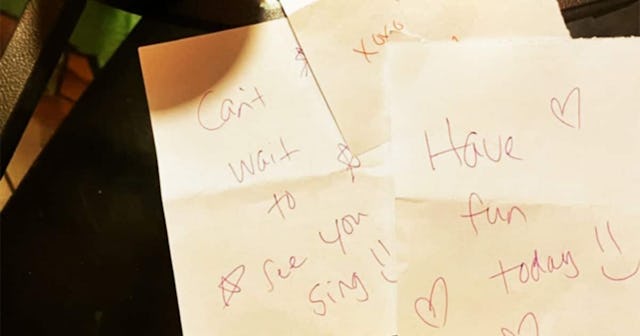 xoxo
Can't
wait
to
see you
sing!!
Have
fun
today!!